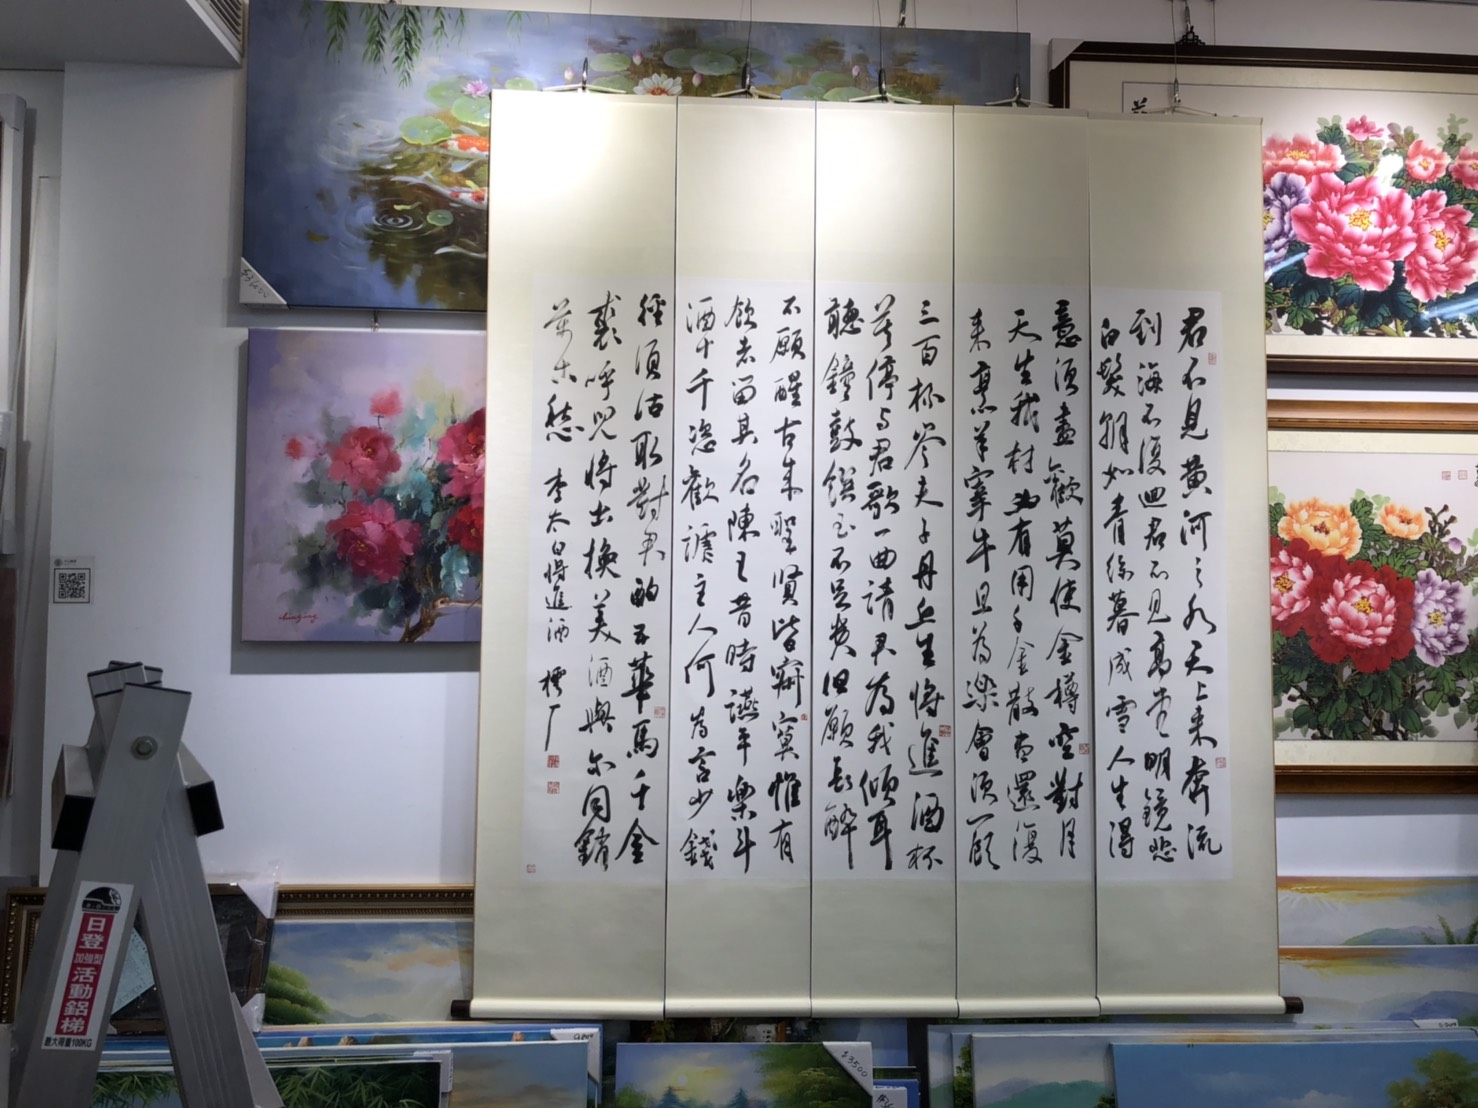 君不見黃河之水天上來奔流
到海不復迴君不見高堂明鏡悲
白髮朝如青絲暮成雪人生得
意須盡歡莫使金樽空對月
天生我材必有用千金散盡還復
來烹羊宰牛且為樂會須一飲
三百杯岑夫子丹丘生將進酒杯
莫停與君歌一曲請君為我傾耳
聽鐘鼓饌玉不足貴但願長醉
不願醒古來聖賢皆寂寞惟有
飲者留其名陳王昔時讌平樂斗
酒十千恣歡謔主人何為言少錢
徑須沽取對君酌五華馬千金
裘呼兒將出換美酒與爾同銷
萬古愁 李太白將進酒
日登
加強型
活動鋁梯
最大荷重100KG
$3600
$3500